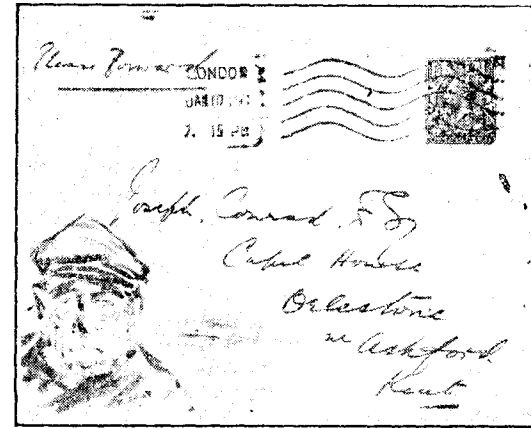 Please Forward
LONDON
JAN 10 191
2. 15 PM
Joseph Conrad Esq
Capel House
Orlestone
nr Ashford
Kent